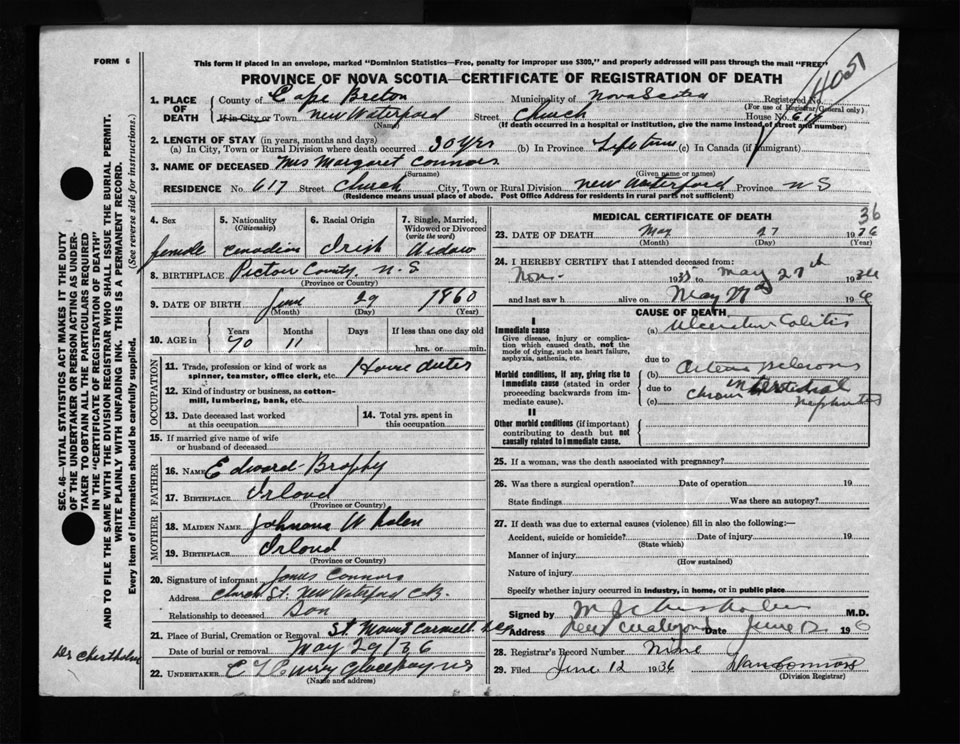 FORM 6
This form if placed in an envelope, marked "Dominion Statistics—Free, penalty for improper use $300," and properly addressed will pass through the mail "FREE"
PROVINCE OF NOVA SCOTIA—CERTIFICATE OF REGISTRATION OF DEATH
4051
1. PLACE OF DEATH
County of Cape Breton Municipality of Nova Scotia Registered No.
(For use of Registrar General only)
If in City or Town New Waterford Street Church House No. 617
(Name) (If death occurred in a hospital or institution, give the name instead of street and number)
2. LENGTH OF STAY (in years, months and days)
(a) In City, Town or Rural Division where death occurred 30 Yrs (b) In Province Lifetime (c) In Canada (if immigrant)
3. NAME OF DECEASED Mrs Margaret Connors
(Surname) (Given name or names)
RESIDENCE No. 617 Street Church City, Town or Rural Division New Waterford Province N S
(Residence means usual place of abode. Post Office Address for residents in rural parts not sufficient)
4. Sex 5. Nationality (Citizenship) 6. Racial Origin 7. Single, Married, Widowed or Divorced (write the word)
female Canadian Irish Widow
8. BIRTHPLACE Pictou County N.S
(Province or Country)
9. DATE OF BIRTH June 29 1860
(Month) (Day) (Year)
10. AGE in Years Months Days If less than one day old
70 11 hrs. or min.
OCCUPATION
11. Trade, profession or kind of work as spinner, teamster, office clerk, etc. House duties
12. Kind of industry or business, as cotton-mill, lumbering, bank, etc.
13. Date deceased last worked at this occupation 14. Total yrs. spent in this occupation
15. If married give name of wife or husband of deceased
FATHER
16. NAME Edward Brophy
17. BIRTHPLACE Irland
(Province or Country)
MOTHER
18. MAIDEN NAME Johnana Whalen
19. BIRTHPLACE Irland
(Province or Country)
20. Signature of informant James Connors
Address Church St. New Waterford C.B.
Relationship to deceased Son
21. Place of Burial, Cremation or Removal St. Mount Carmell
Date of burial or removal May 29/36
22. UNDERTAKER Curry Glace Bay NS
(Name and address)
MEDICAL CERTIFICATE OF DEATH
36
23. DATE OF DEATH May 27 1936
(Month) (Day) (Year)
24. I HEREBY CERTIFY that I attended deceased from:
Nov. 1935 to May 27th 1936
and last saw h alive on May 27th 1936
CAUSE OF DEATH
I
Immediate cause (a) Ulcerative Colitis
Give disease, injury or complication which caused death, not the mode of dying, such as heart failure, asphyxia, asthenia, etc.
due to
Morbid conditions, if any, giving rise to immediate cause (stated in order proceeding backwards from immediate cause).
(b) Arterio sclerosis
due to
(c) Chronic interstitial nephritis
II
Other morbid conditions (if important) contributing to death but not causally related to immediate cause.
25. If a woman, was the death associated with pregnancy?
26. Was there a surgical operation? Date of operation 19
State findings Was there an autopsy?
27. If death was due to external causes (violence) fill in also the following:—
Accident, suicide or homicide? Date of injury 19
(State which)
Manner of injury
(How sustained)
Nature of injury
Specify whether injury occurred in industry, in home, or in public place
Signed by M. J. Chisholm M.D.
Address New Waterford Date June 12 1936
28. Registrar's Record Number Nine
29. Filed June 12 1936 Dan Connors
(Division Registrar)
SEC. 46—VITAL STATISTICS ACT MAKES IT THE DUTY
OF THE UNDERTAKER OR PERSON ACTING AS UNDER-
TAKER TO OBTAIN ALL THE PARTICULARS REQUIRED
IN THE "CERTIFICATE OF REGISTRATION OF DEATH"
AND TO FILE THE SAME WITH THE DIVISION REGISTRAR WHO SHALL ISSUE THE BURIAL PERMIT.
WRITE PLAINLY WITH UNFADING INK. THIS IS A PERMANENT RECORD.
Every item of information should be carefully supplied. (See reverse side for instructions.)
Dr Chisholm